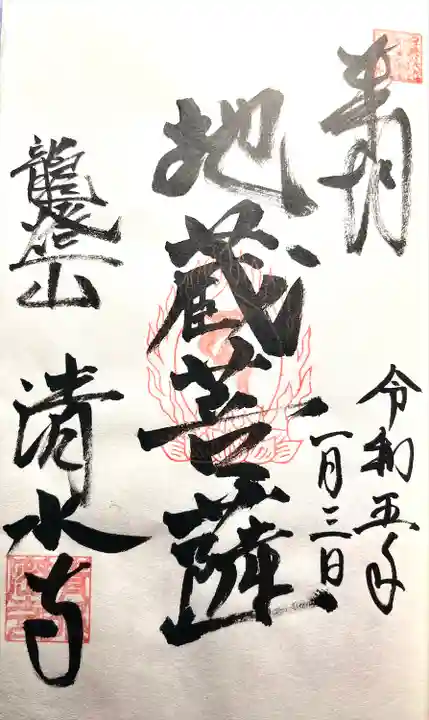 奉拝
令和五年
一月三日
地蔵菩薩
龍登山
清水寺